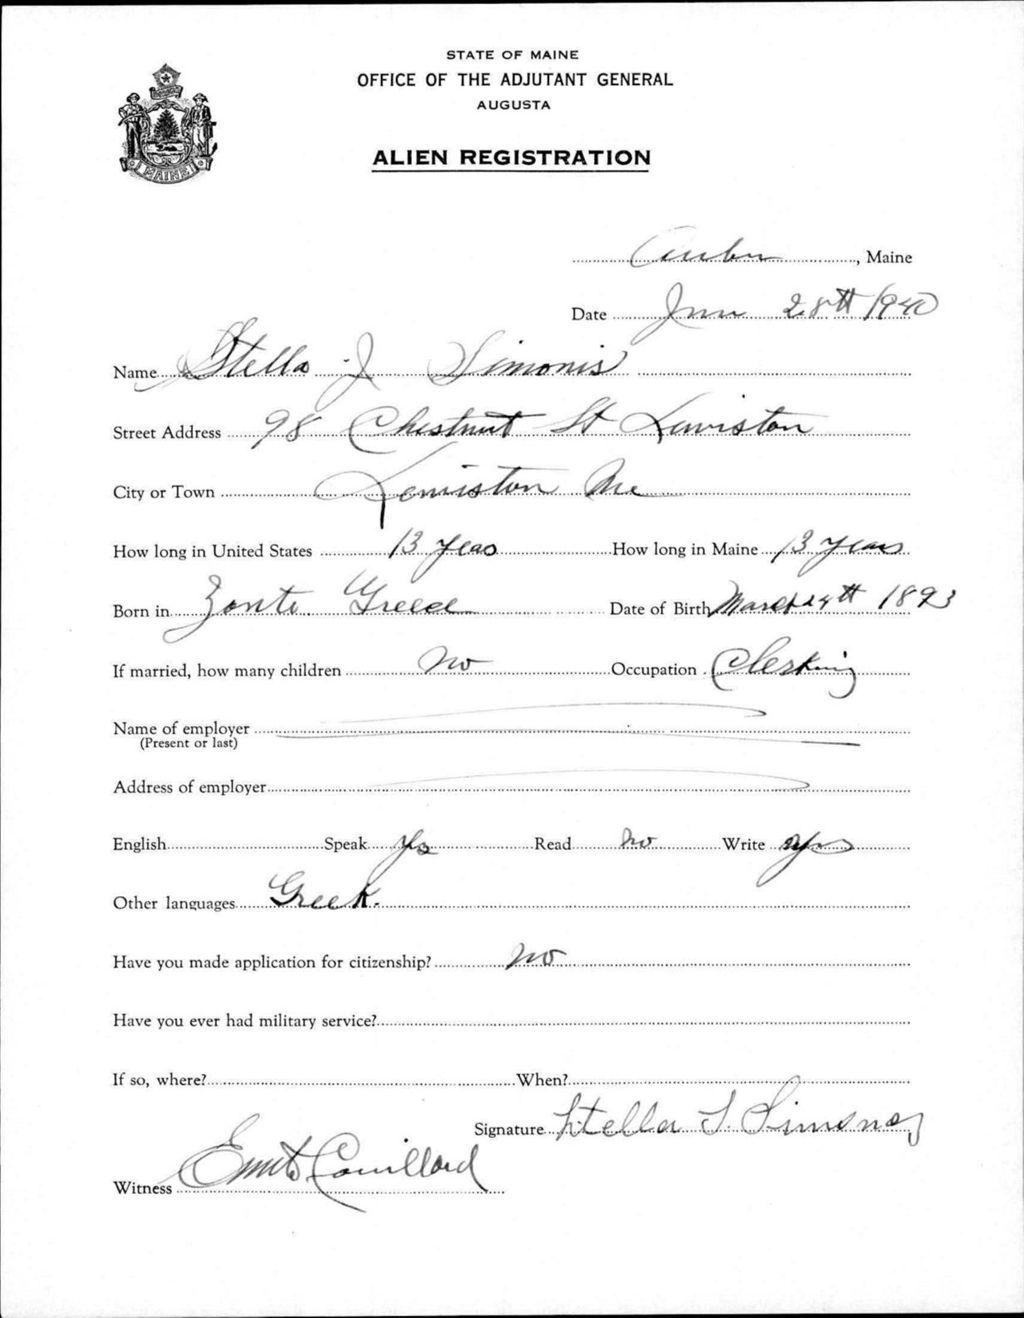 STATE OF MAINE
OFFICE OF THE ADJUTANT GENERAL
AUGUSTA
MAINE
ALIEN REGISTRATION
Auburn, Maine
Date June 28th 1940
Name Stella J Simonis
Street Address 98 Chestnut St Lewiston
City or Town Lewiston Me
How long in United States 13 years How long in Maine 13 years
Born in Zante. Greece Date of Birth March 1893
If married, how many children no Occupation Clerking
Name of employer
(Present or last)
Address of employer
English Speak Yes Read no Write yes
Other languages Greek.
Have you made application for citizenship? no
Have you ever had military service?
If so, where? When?
Signature Stella
Witness Couillard